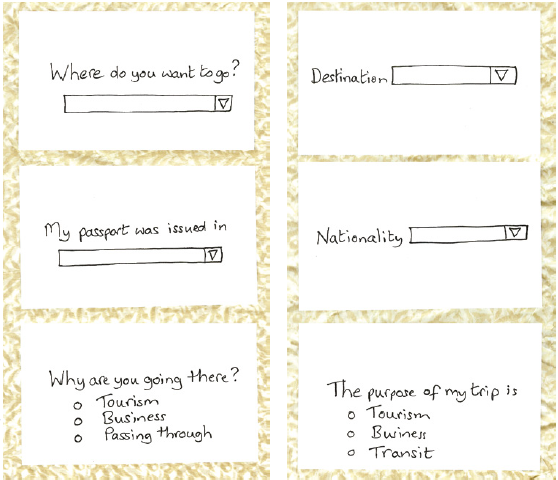 Where do you want to go?
My passport was issued in
Why are you going there?
Tourism
Business
Passing through
Destination
Nationality
The purpose of my trip is
Tourism
Business
Transit